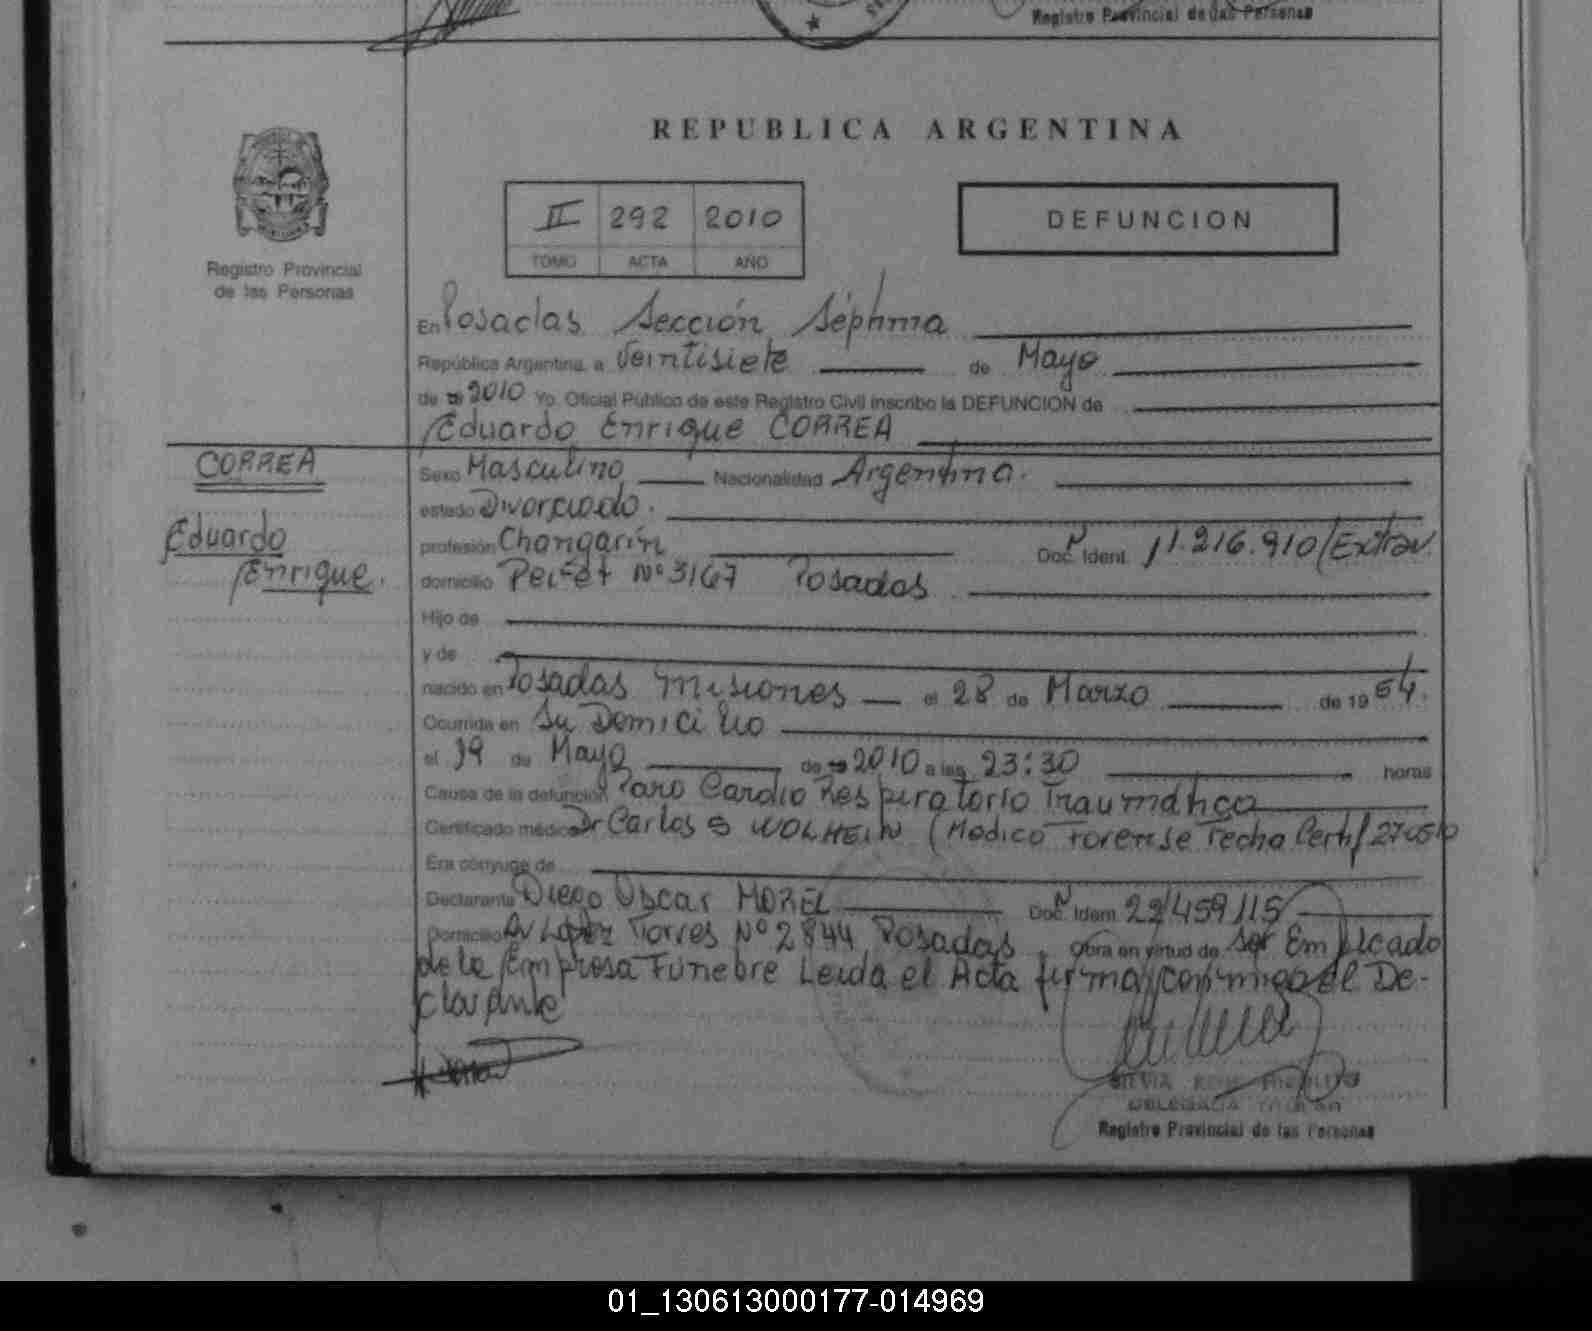 Registro Provincial de las Personas
REPUBLICA ARGENTINA
II 292 2010
TOMO ACTA AÑO
DEFUNCION
Registro Provincial
de las Personas
En Posadas Sección Séptima
República Argentina, a Veintisiete de Mayo
de 19 2010 Yo, Oficial Público de este Registro Civil inscribo la DEFUNCION de
Eduardo Enrique CORREA
CORREA
Eduardo
Enrique.
Sexo Masculino Nacionalidad Argentina.
estado Divorciado.
profesión Changarín Doc. N Ident. 11.216.910/Extrav.
domicilio Nº 3167 Posadas
Hijo de
y de
nacido en Posadas Misiones el 28 de Marzo de 19 54.
Ocurrida en Su Domicilio
el 19 de Mayo de 19 2010 a las 23:30 horas
Causa de la defunción Paro Cardio Respiratorio Traumático
Certificado médico Dr Carlos S WOLHEIN (Medico Forense Fecha Certif 270510
Era cónyuge de
Declarante Diego Oscar MOREL Doc. N Ident. 22/459115
Domicilio Av López Torres Nº 2844 Posadas Obra en virtud de ser Empleado
de la Empresa Funebre Leida el Acta firma conmigo el De-
clarante
SILVIA
DELEGADA
Registro Provincial de las Personas
01_130613000177-014969